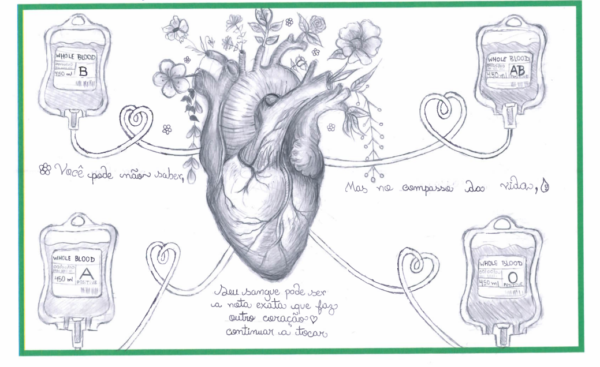 WHOLE BLOOD
B
450 ml
WHOLE BLOOD
AB
450 ml
Você pode não saber,
Mas no compasso da vida,
WHOLE BLOOD
A
450 ml
WHOLE BLOOD
O
450 ml
Seu sangue pode ser
a nota exata que faz
outro coração
continuar a tocar